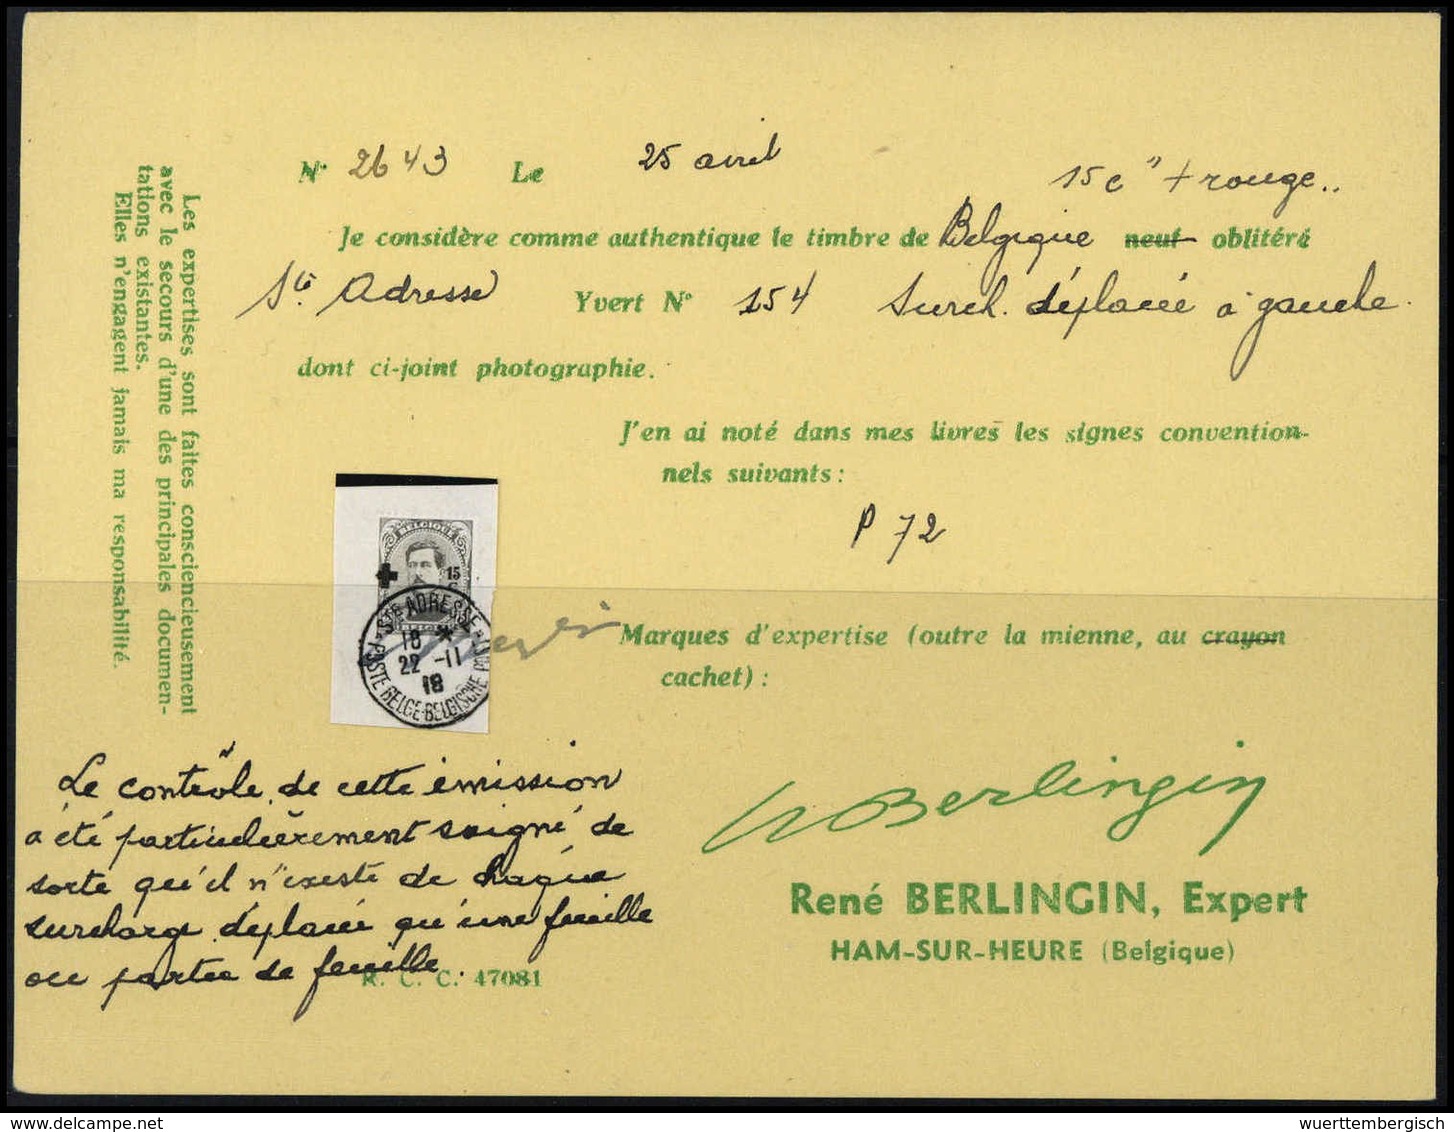 N° 2643 Le 25 avril
15 c" + rouge..
Je considère comme authentique le timbre de Belgique neuf oblitéré
Ste Adresse Yvert N° 154 Surch. déplacée à gauche.
dont ci-joint photographie.
J'en ai noté dans mes livres les signes convention-
nels suivants :
P 72
Marques d'expertise (outre la mienne, au crayon
cachet) :
Les expertises sont faites consciencieusement
avec le secours d'une des principales documen-
tations existantes.
Elles n'engagent jamais ma responsabilité.
BELGIQUE
15
STE ADRESSE
18
22 -11
18
POSTE BELGE-BELGISCHE
Le contrôle de cette émission
a été particulièrement soigné de
sorte qu'il n'existe de chaque
surcharge déplacée qu'une feuille
ou partie de feuille.
R. C. C. 47081
Berlingin
René BERLINGIN, Expert
HAM-SUR-HEURE (Belgique)
delcampe.net
wuerttembergisch